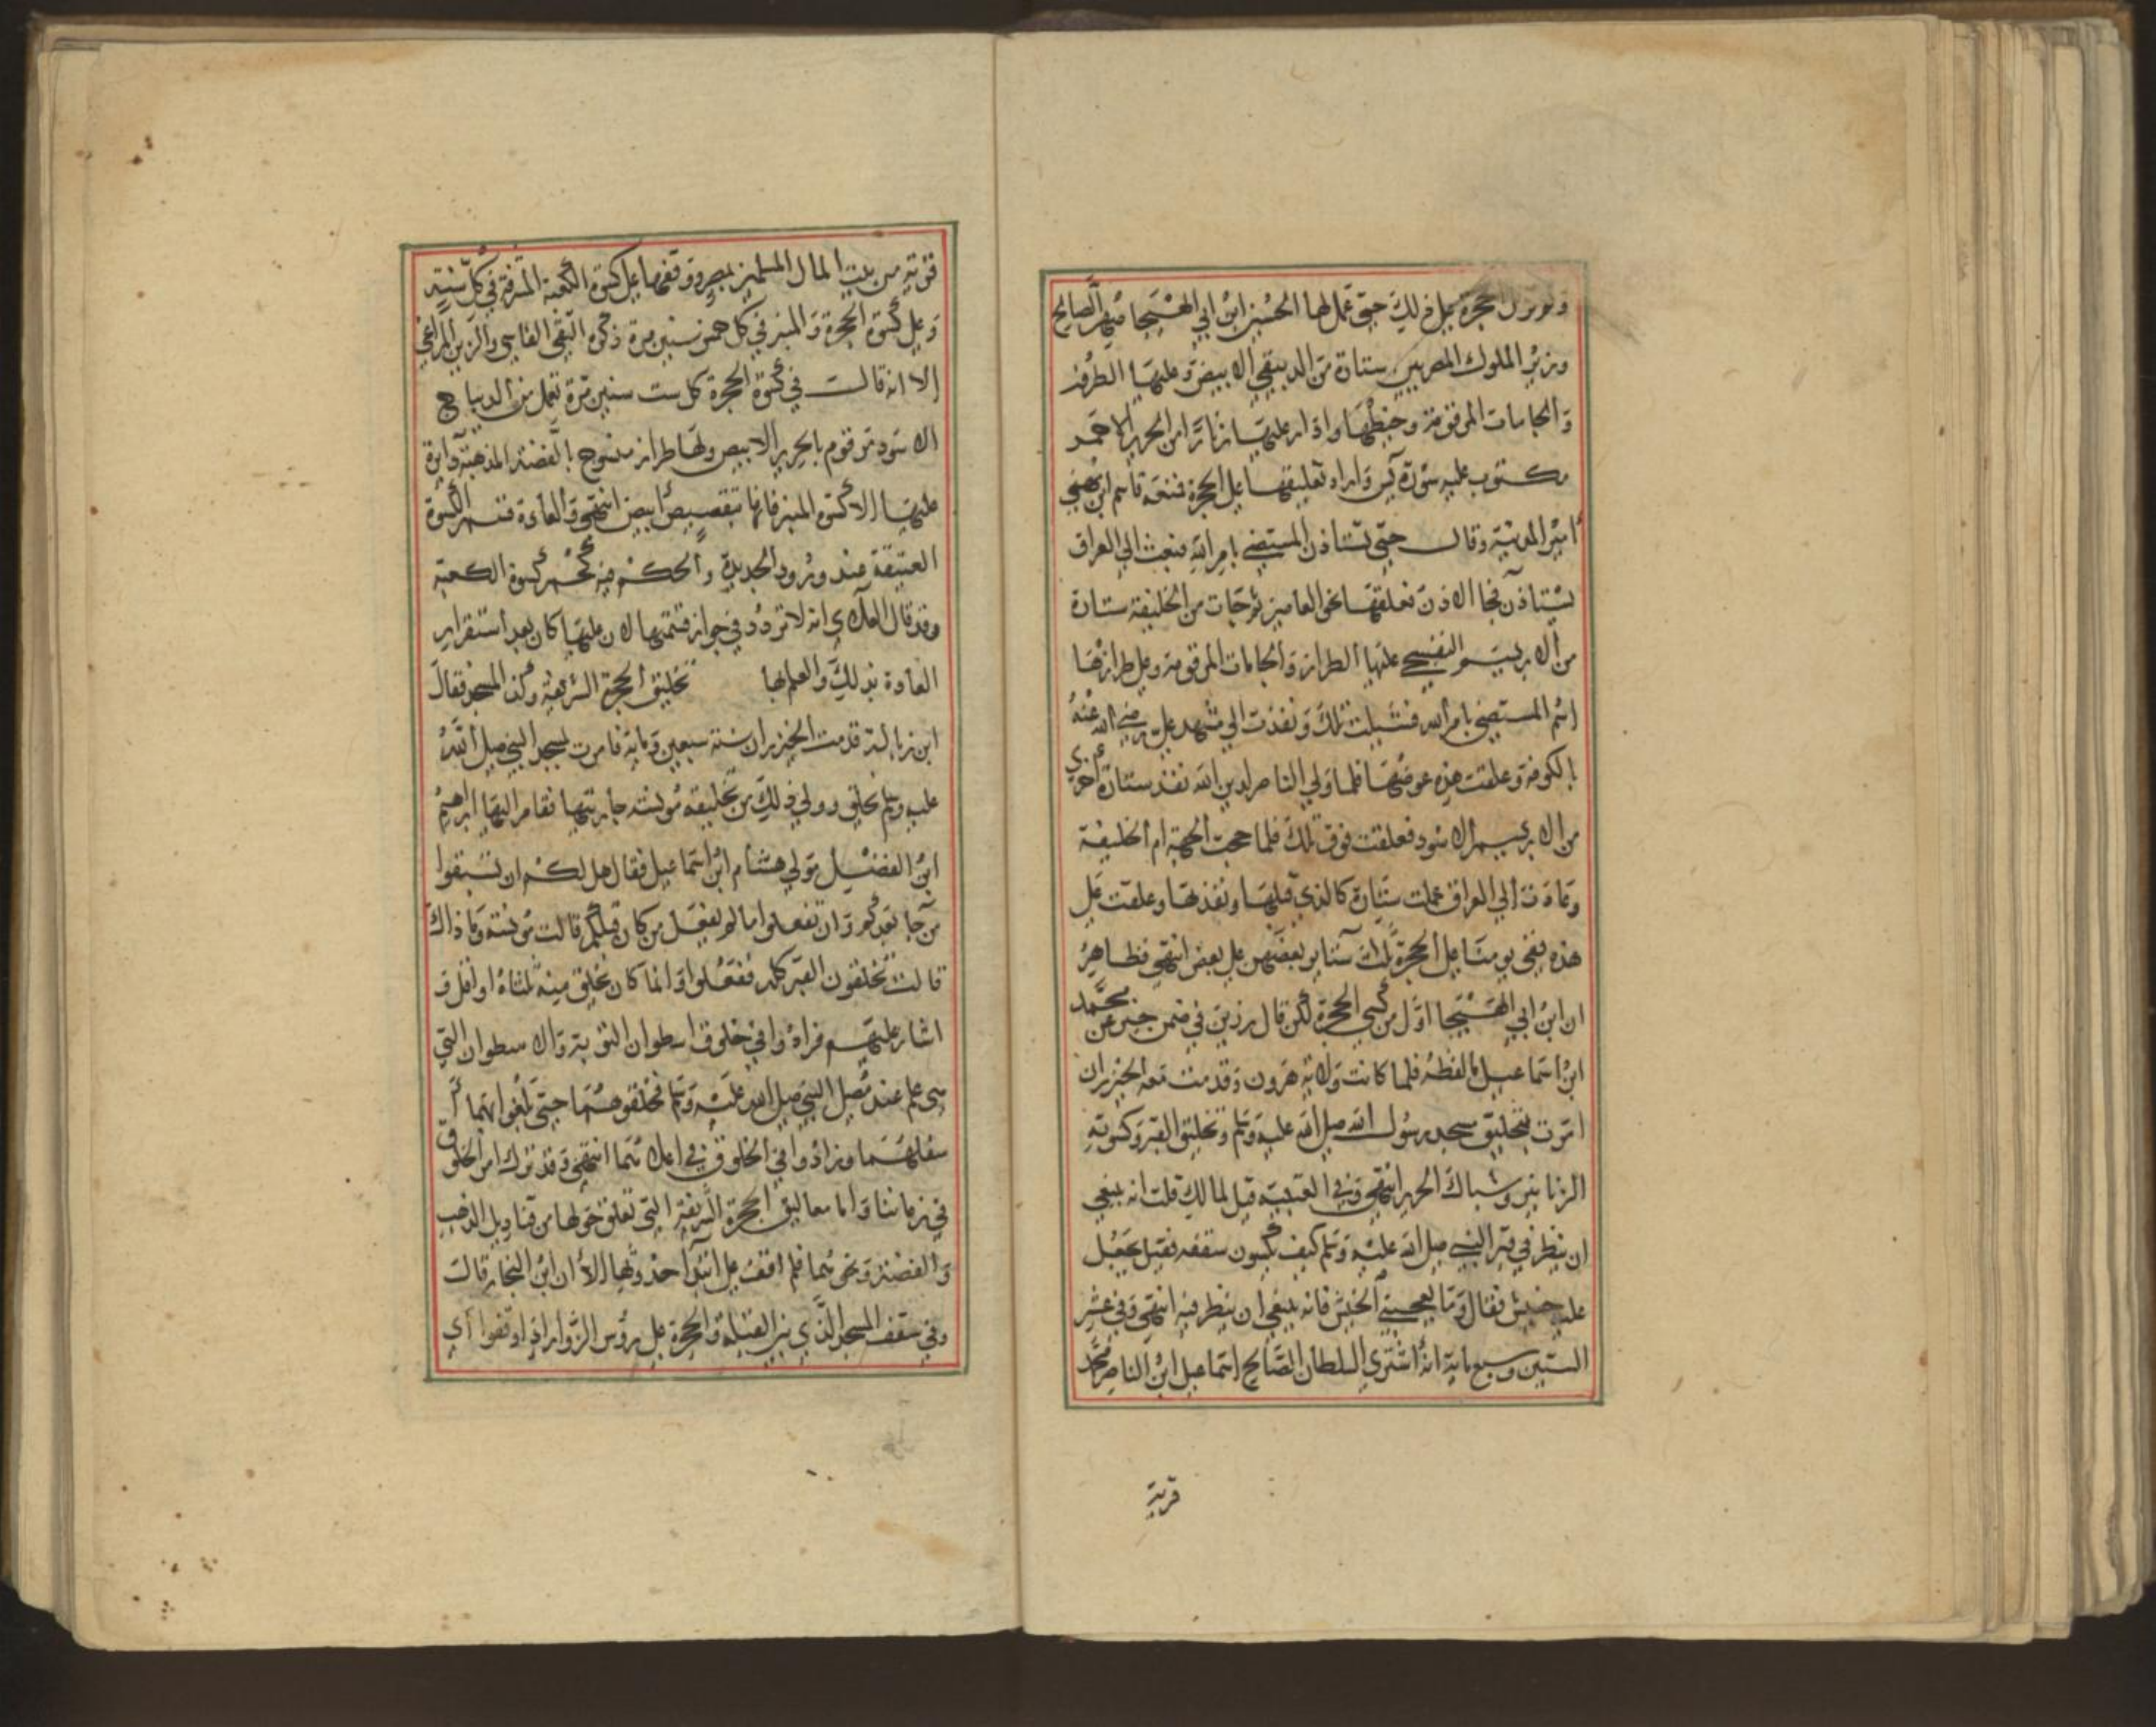 ولم تزل الحجرة على ذلك حتى عمل لها الحسين ابن ابي الهيجا صهر الصالح
وزير الملوك المصريين ستارة من الدبيقي الابيض وعليها الطروز
والجامات المرقومة وخيطها وادار عليها زنارا من الحرير الاحمر
مكتوب عليه سورة يس واراد تعليقها على الحجرة فمنعه قاسم ابن مهنى
امير المدينة وقال حتى تستاذن المستضي بامر الله فبعث الى العراق
يستاذن فجا الاذن فعلقها نحو العامين ثم جات من الخليفة ستارة
من الابريسم البنفسجي عليها الطراز والجامات المرقومة وعلى طرازها
اسم المستضي بامر الله فشيلت تلك ونفذت الى مشهد علي رضي الله عنه
بالكوفة وعلقت هذه عوضها فلما ولي الناصر لدين الله نفذ ستارة اخرى
من الابريسم الاسود فعلقت فوق تلك فلما حجت الجهة ام الخليفة
وعادت الى العراق عملت ستارة كالذي قبلها ونفذتها وعلقت على
هذه ففي يومنا على الحجرة ثلاث ستاير بعضهن على بعض انتهى فظاهر
ان ابن ابي الهيجا اول من كسى الحجرة لكن قال رزين في ضمن خبر عن محمد
ابن اسماعيل ما لفظه فلما كانت ولاية هرون وقدمت معه الخيزران
امرت بتخليق مسجد رسول الله صلى الله عليه وسلم وتخليق القبر وكسوته
الزنانير وشباك الحرير انتهى وفي العتبية قيل لمالك قلت انه ينبغي
ان ينظر في قبر النبي صلى الله عليه وسلم كيف يكون سقفه فقيل يجعل
عليه خيش فقال وما يعجبني الخيش فانه ينبغي ان ينظر فيه انتهى وفي عشر
الستين وسبع ماية انه اشترى السلطان الصالح اسماعيل ابن الناصر محمد
قرية
قرية من بيت المال المسلمين بمصر ووقفها على كسوة الكعبة المشرفة في كل سنة
وعلى كسوة الحجرة والمنبر في كل خمس سنين مرة ذكره التقي الفاسي والزين المراغي
الا انه قال في كسوة الحجرة كل ست سنين مرة تعمل من الديباج
الاسود مرقوم بالحرير الابيض ولها طراز منسوج بالفضة المذهبة دايرة
عليها الا كسوة المنبر فانها بتقصيص ابيض انتهى والعادة قسم الكسوة
العتيقة عند ورود الجديدة والحكم فيه كحكم كسوة الكعبة
وقد قال العلاي انه لا تردد في جواز قسمتها لان عليها كان بعد استقرار
العادة بذلك والعلم بها تخليق الحجرة الشريفة وكذا المسجد فقال
ابن زبالة قدمت الخيزران سنة سبعين وماية فامرت بمسجد النبي صلى الله
عليه وسلم فخلق وولي ذلك من تخليقه مونسة جاريتها فقام اليها ابراهيم
ابن الفضيل مولى هشام ابن اسماعيل فقال هل لكم ان تسبقوا
من جا بعدكم وان تفعلوا ما لم يفعل من كان قبلكم قالت مونسة وما ذاك
قالت تخلقون القبر كله ففعلوا وانما كان يخلق منه ثلثاه او اقل و
اشار عليهم فزادوا في خلوق اسطوان التوبة والاسطوان التي
هي علم عند مصلى النبي صلى الله عليه وسلم فخلقوهما حتى بلغوا بهما
سفلهما وزادوا في الخلوق في اعلاهما انتهى وقد ترك امر الخلوق
في زماننا واما معاليق الحجرة الشريفة التي تعلق حولها من قناديل الذهب
والفضة ونحوهما فلم اقف على ابتدا حدوثها الا ان ابن النجار قال
وفي سقف المسجد الذي بين القبلة والحجرة على رؤس الزوار اذا وقفوا اي